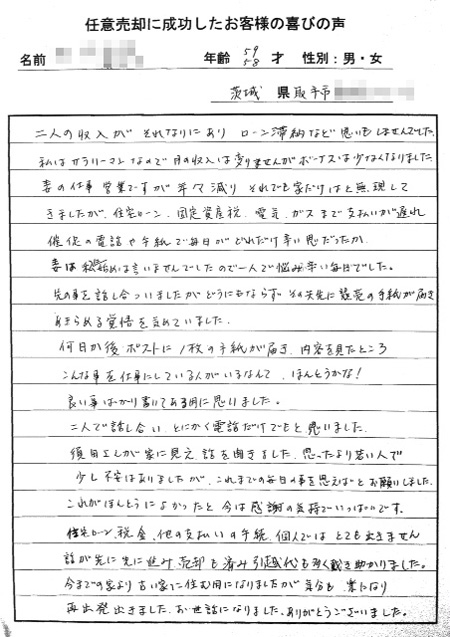 任意売却に成功したお客様の喜びの声
名前 年齢 59 58 才 性別：男・女
茨城 県 取手市
二人の収入が それなりにあり ローン滞納など思いもしませんでした。
私はサラリーマンなので月の収入は変りませんがボーナスは少なくなりました。
妻の仕事 営業ですが年々減り それでも家だけはと無理して
きましたが、住宅ローン、固定資産税、電気、ガスまで支払いが遅れ
催促の電話や手紙で毎日がどれだけ辛い思だったか、
妻は 始めは言いませんでしたので一人で悩み辛い毎日でした。
先の事を話し合っいましたがどうにもならず その矢先に競売の手紙が届き
あきらめる覚悟を決めていました。
何日か後 ポストに1枚の手紙が届き、内容を見たところ
こんな事を仕事にしている人がいるなんて、ほんとうかな！
良い事ばかり書いてある用に思いました。
二人で話し合い、とにかく電話だけでもと思いました。
須田さんが家に見え、話を聞きました、思ったより若い人で
少し不安はありましたが、これまでの毎日の事を思えばとお願いしました。
これがほんとうによかったと今は感謝の気持でいっぱいです。
住宅ローン、税金、他の支払いの手続、個人ではとても出きません
話が先に先に進み、売却も済み引越代も多く戴き助かりました。
今までの家より古い家に住む用になりましたが気分も 楽になり
再出発出きました、お世話になりました。ありがとうございました。